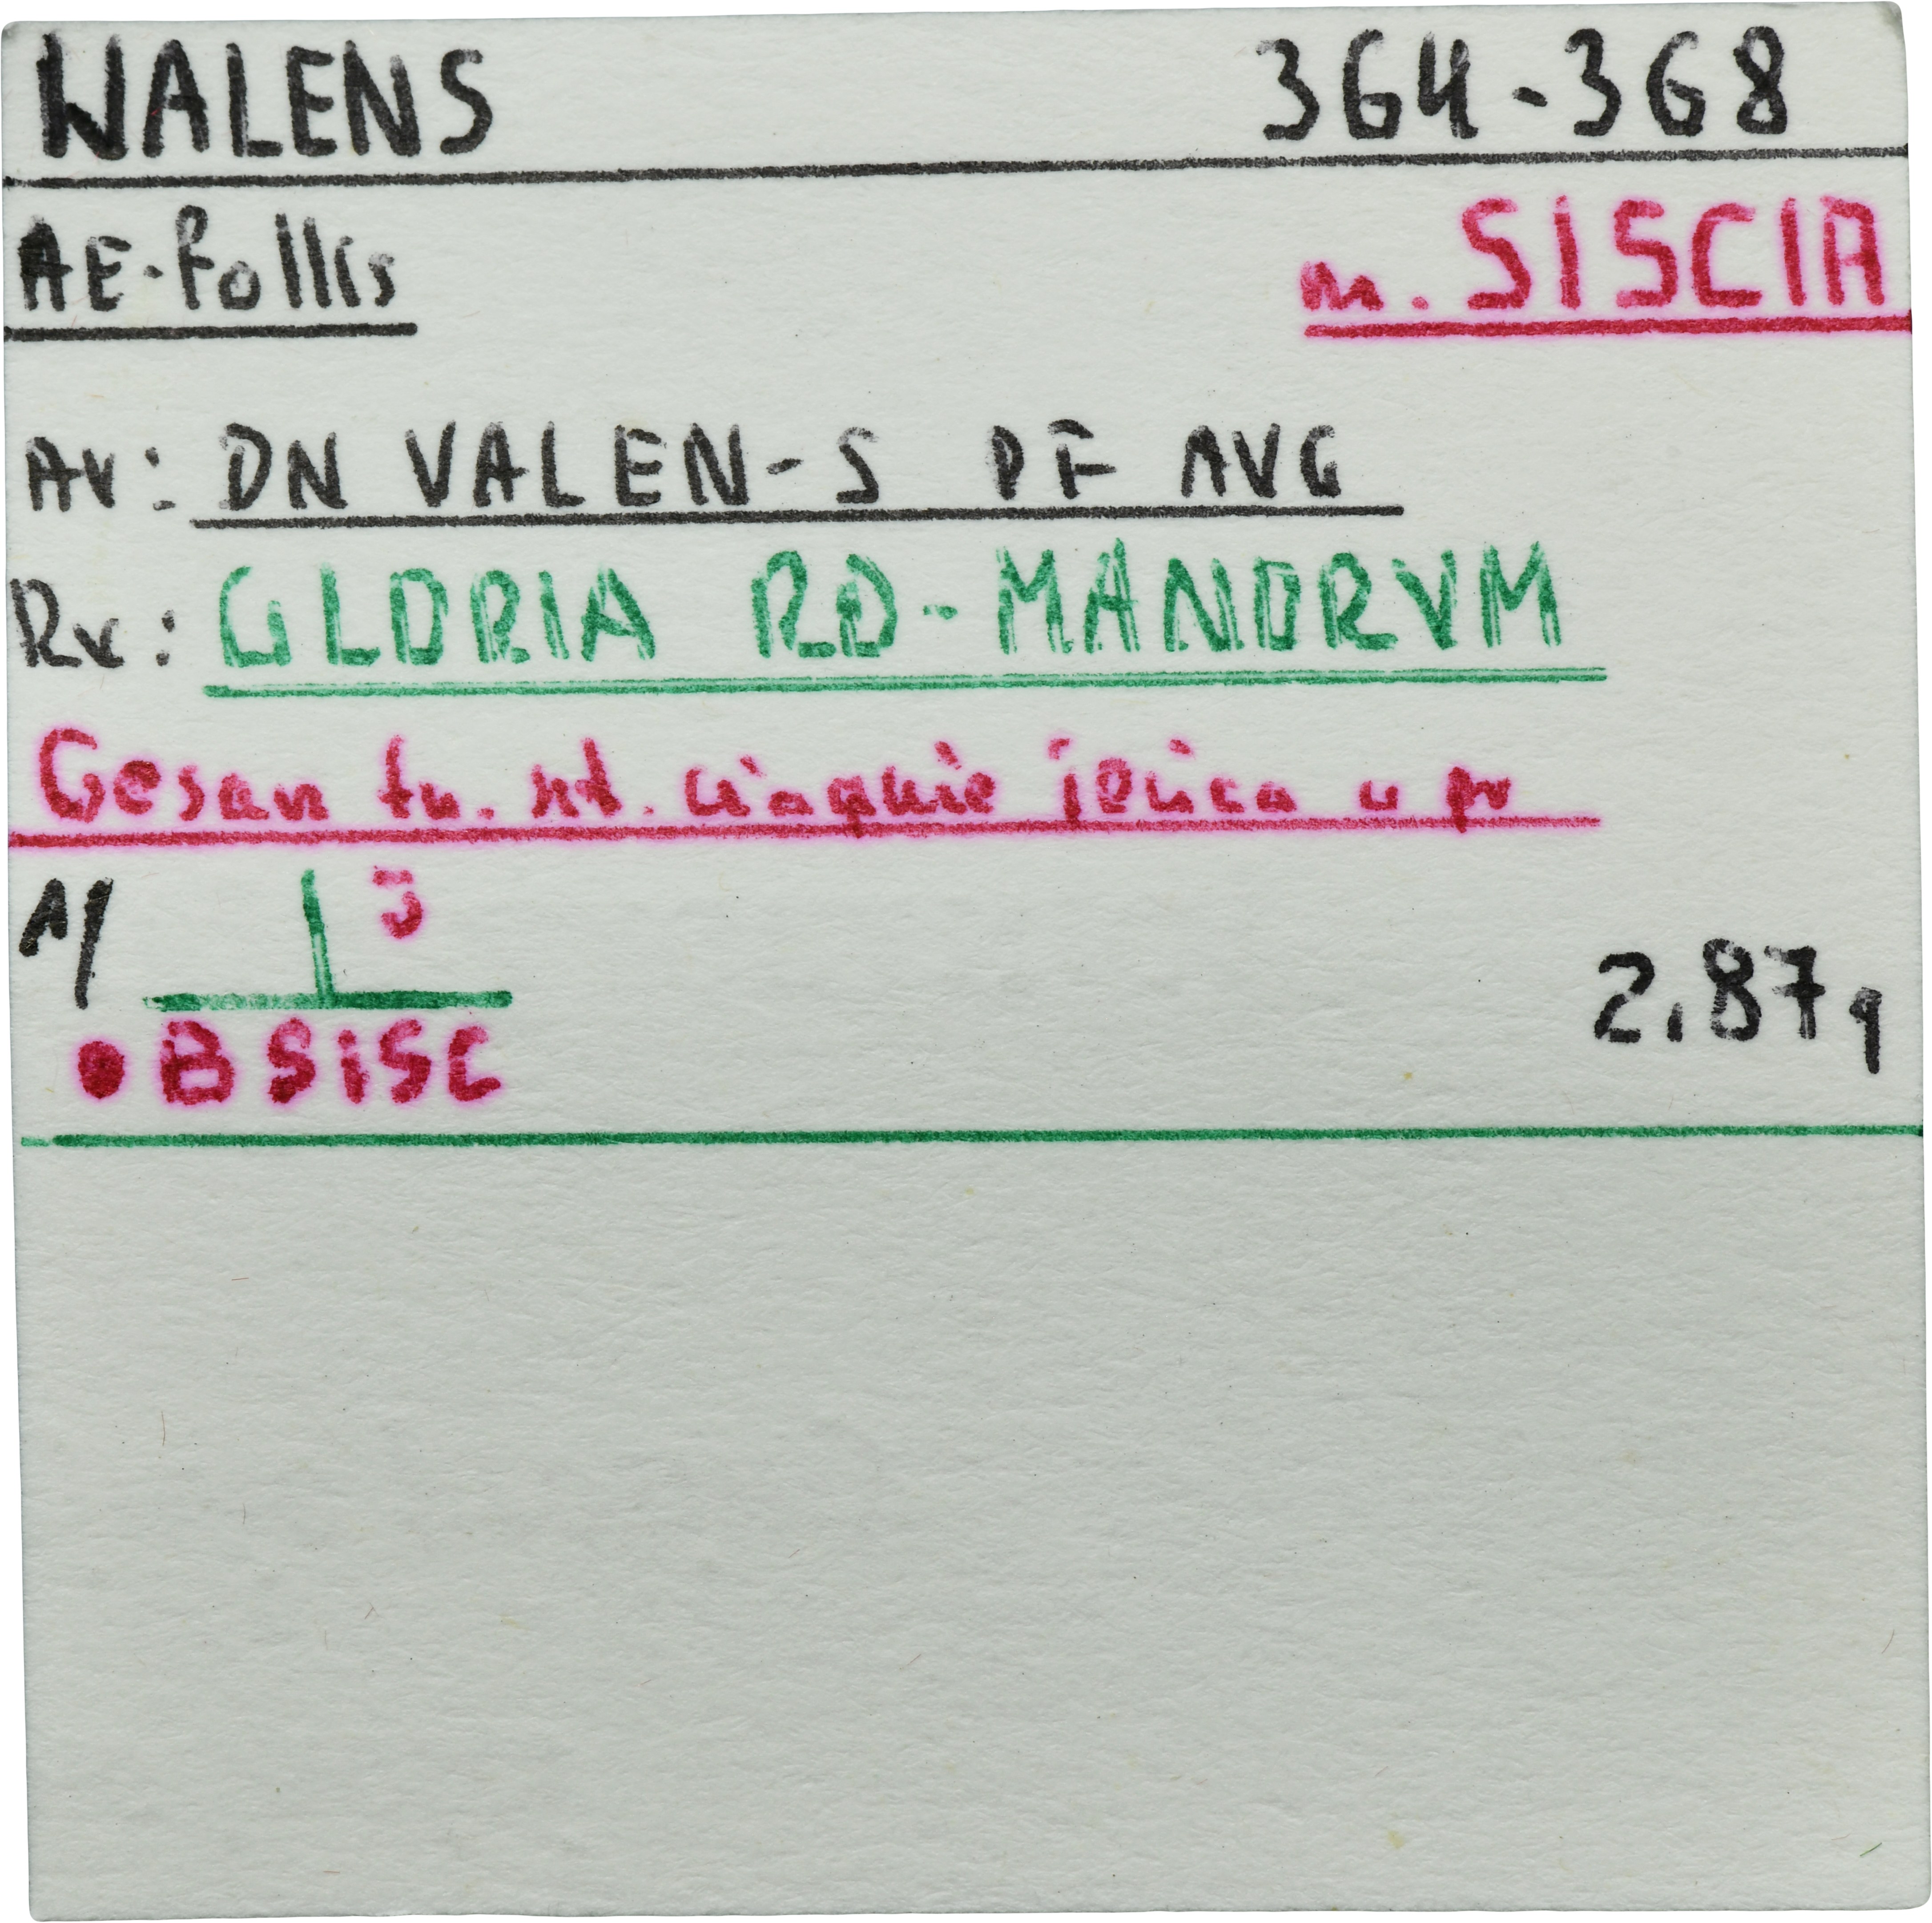 WALENS 364-368
AE-Follis m. SISCIA
Av: DN VALEN-S PF AVG
Rv: GLORIA RO-MANORVM
Cesarz tr. szt. ciągnie jeńca w pr
1/
•BSiSC 2,87g